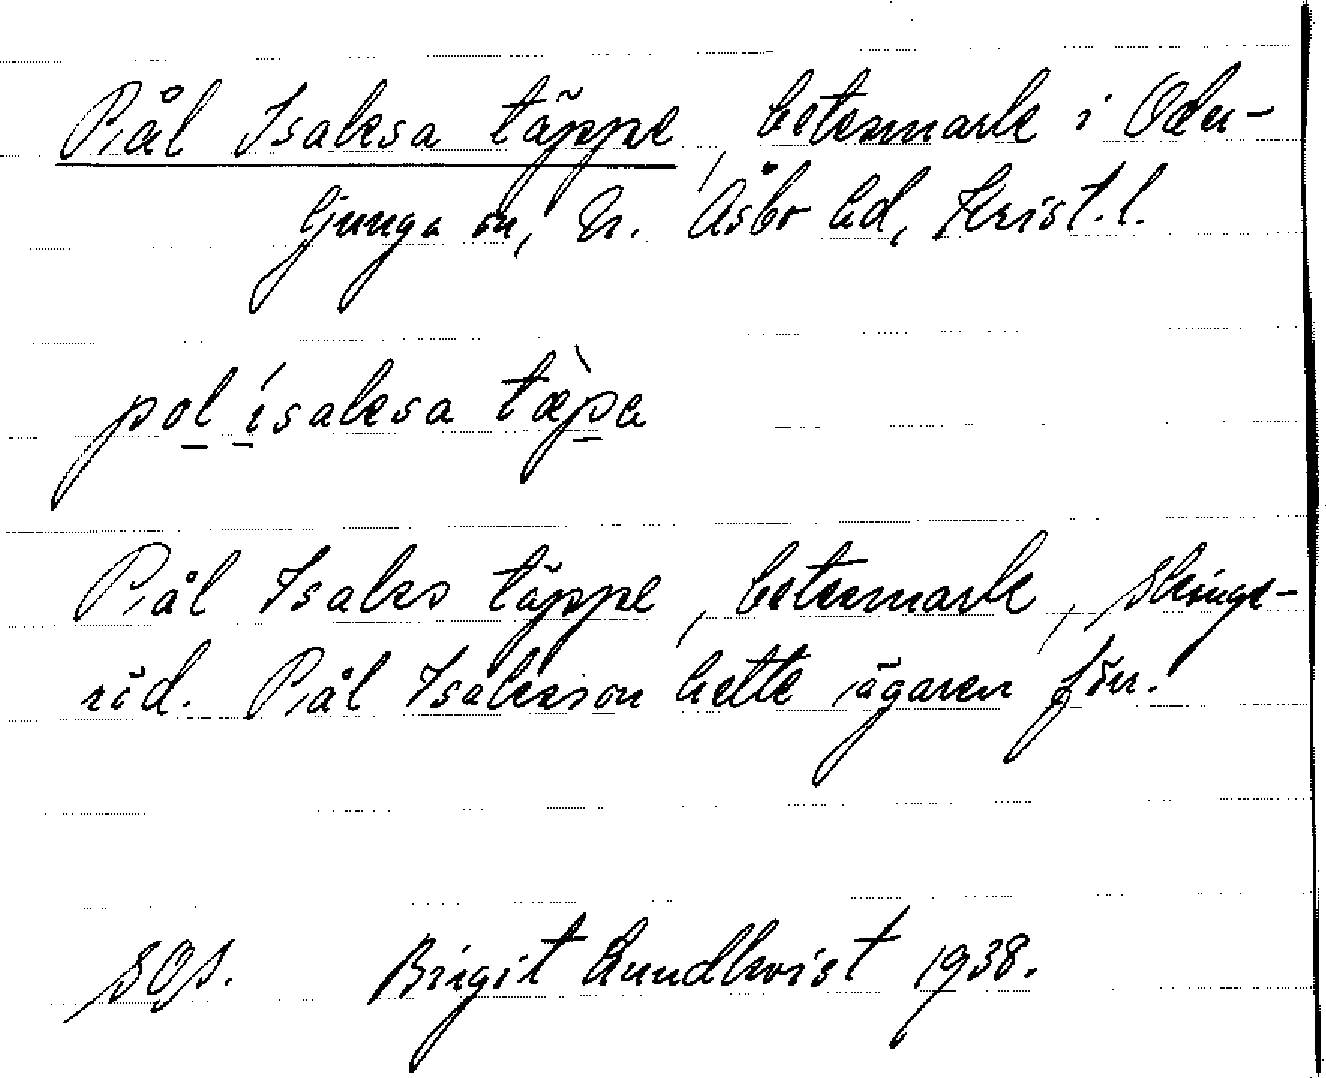 Pål Isaksa täppe, betesmark i Oder-
ljunga sn, N. Åsbo hd, Krist. l.
pol ísaksa tæ̀pa
Pål Isaks täppe, betesmark, Skinge-
röd. Pål Isaksson hette ägaren förr.
SOS. Birgit Lundkvist 1938.